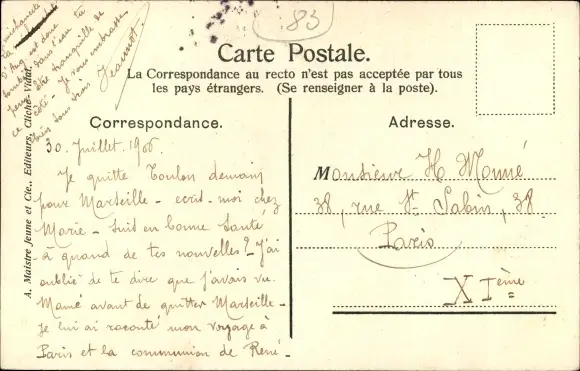 83
Carte Postale.
La Correspondance au recto n'est pas acceptée par tous
les pays étrangers. (Se renseigner à la poste).
Correspondance.
Adresse.
30. Juillet. 1906.
Je quitte Toulon demain
pour Marseille - ecris-moi chez
Marie - suis en bonne santé,
à quand de tes nouvelles? J'ai
oublié de te dire que j'avais vu
Mamé avant de quitter Marseille -
Je lui ai raconté mon voyage à
Paris et la communion de René -
la
D'Aug est donc
tombée dans l'eau tu
peux être tranquille de
ce côté - Je vous embrasse
bien tous trois
Jeannot
Monsieur H. Monné
38, rue St Sabin, 38
Paris
XIème
A. Maistre Jeune et Cie., Editeurs, Cliché-Vidal.